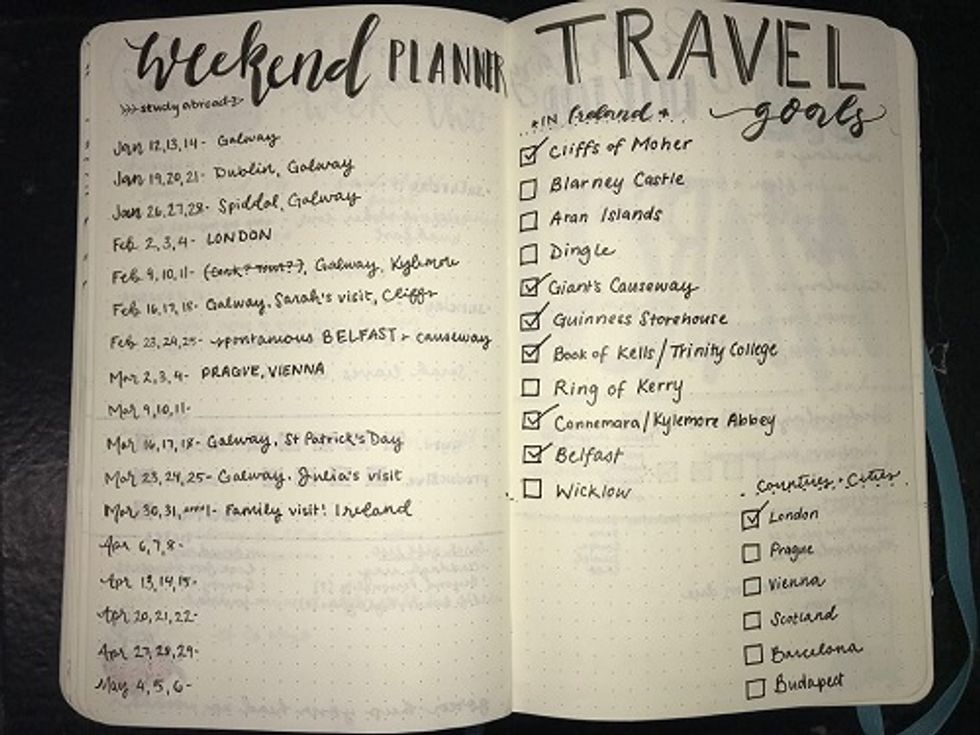 Weekend PLANNER
>>> study abroad
Jan 12,13,14 - Galway
Jan 19,20,21 - Dublin, Galway
Jan 26,27,28 - Spiddal, Galway
Feb 2,3,4 - LONDON
Feb 9,10,11 - Galway, Kylemore
Feb 16,17,18 - Galway, Sarah's visit, Cliffs
Feb 23,24,25 - spontaneous BELFAST + causeway
Mar 2,3,4 - PRAGUE, VIENNA
Mar 9,10,11 -
Mar 16,17,18 - Galway, St Patrick's Day
Mar 23,24,25 - Galway. Julia's visit
Mar 30,31, april 1 - Family visit! Ireland
Apr 6,7,8 -
Apr 13,14,15 -
Apr 20,21,22 -
Apr 27,28,29 -
May 4,5,6 -
TRAVEL
goals
IN Ireland
Cliffs of Moher
Blarney Castle
Aran Islands
Dingle
Giant's Causeway
Guinness Storehouse
Book of Kells/Trinity College
Ring of Kerry
Connemara/Kylemore Abbey
Belfast
Wicklow
Countries + Cities
London
Prague
Vienna
Scotland
Barcelona
Budapest